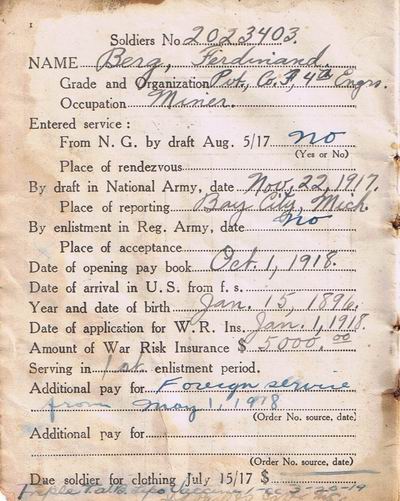 1
Soldiers No. 2023403.
NAME Berg, Ferdinand.
Grade and Organization Pvt., Co. F, 4th Engrs.
Occupation Miner.
Entered service :
From N. G. by draft Aug. 5/17 no
(Yes or No)
Place of rendezvous
By draft in National Army, date Nov. 22, 1917.
Place of reporting Bay City, Mich.
By enlistment in Reg. Army, date no
Place of acceptance
Date of opening pay book Oct. 1, 1918.
Date of arrival in U. S. from f. s.
Year and date of birth Jan. 15, 1896.
Date of application for W. R. Ins. Jan. 1, 1918.
Amount of War Risk Insurance $ 5000.00
Serving in 1st enlistment period.
Additional pay for Foreign service
from May 1, 1918
(Order No. source, date)
Additional pay for
(Order No. source, date)
Due soldier for clothing July 15/17 $
Triple 3-20-19